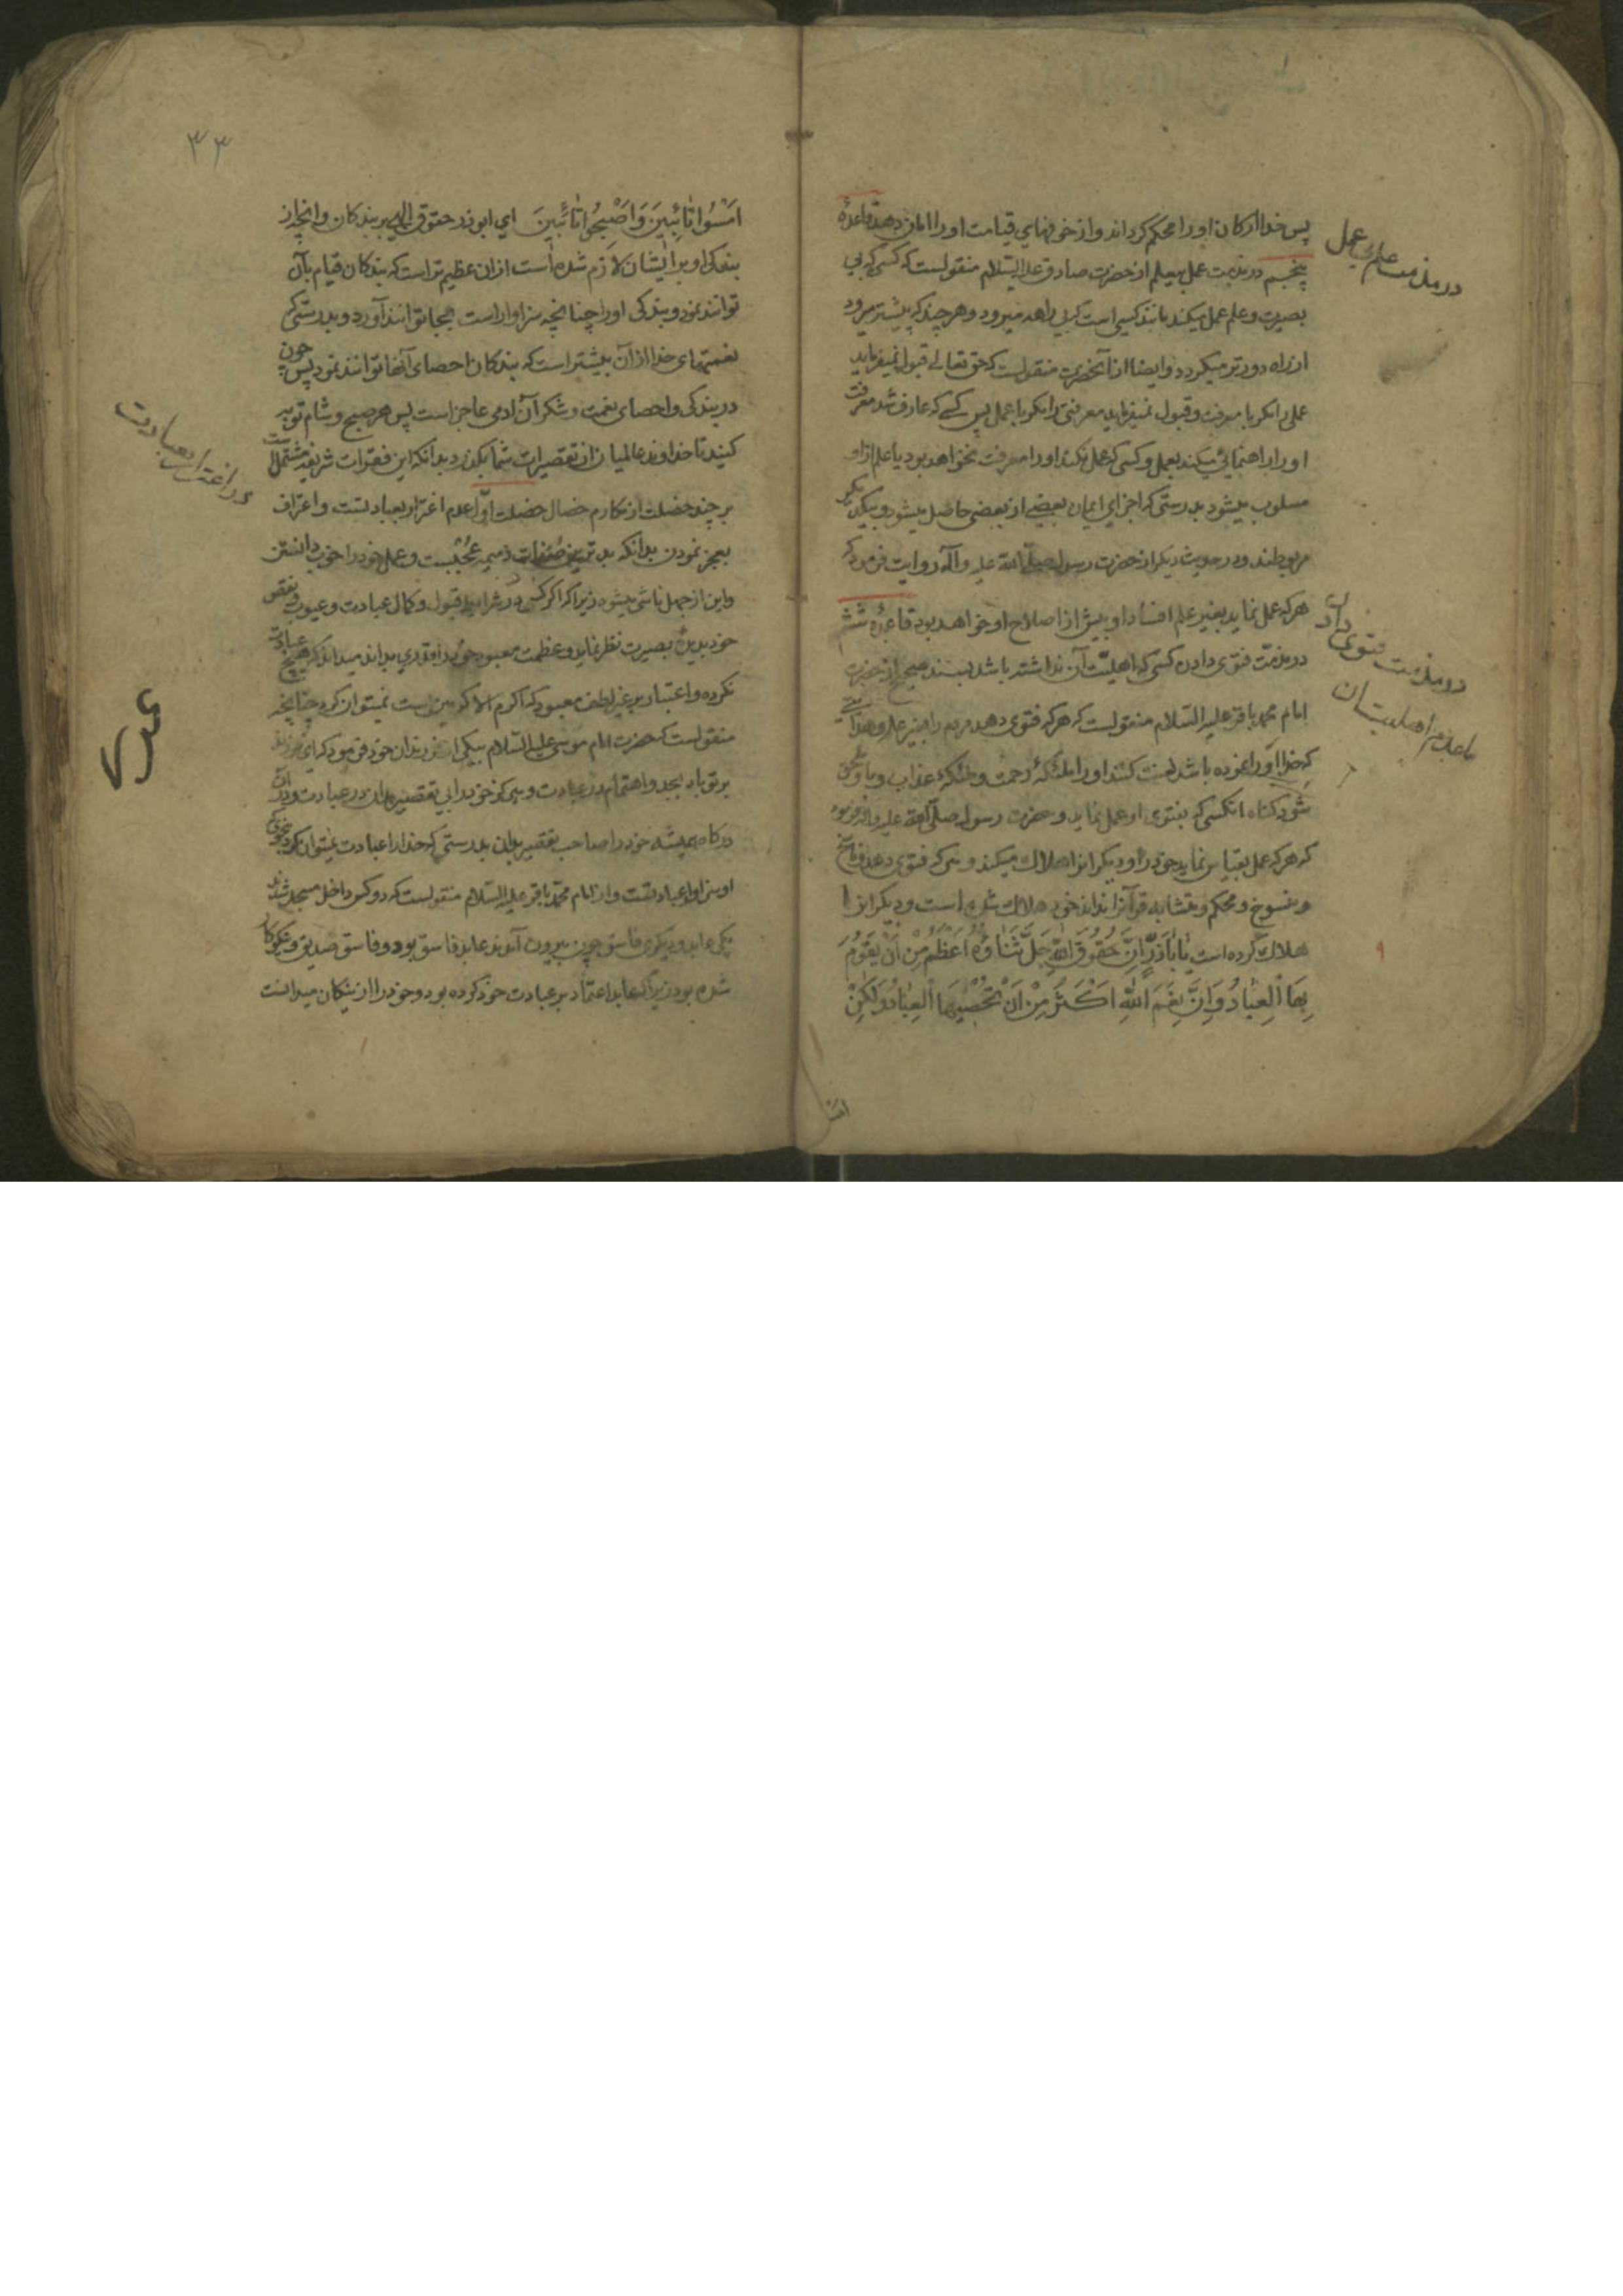 پس خدا ارکان او را محکم گرداند و از خوفهای قیامت او را امان دهد قاعدهٔ
پنجم در مذمت عمل بیعلم از حضرت صادق علیه السّلام منقولست که کسی که بی
بصیرت و علم عمل میکند مانند کسی است که بی راهه میرود و هر چند که بیشتر میرود
از راه دورتر میکردد و ایضا از آنحضرت منقولست که حق تعالی قبول نمیفرماید
عملی را مکر با معرفت و قبول نمیفرماید معرفتی را مکر با عمل پس کسے که عارف شد معرفت
او را راهنمائی میکند بعمل و کسی که عمل نکند او را معرفت نخواهد بود یا علم از او
مسلوب میشود بدرستی که اجزای ایمان بعضی از بعضی حاصل میشود و بیکدیکر
مربوطند و در حدیث دیکر از حضرت رسول صلّی الله علیه وآله روایت فرمود که
هر که عمل نماید بغیر علم افساد او بیش از اصلاح او خواهد بود قاعدهٔ ششم
در مذمّت فتوی دادن کسی که اهلیّت آن نداشته باشد بسند صحیح از حضرت
امام محمد باقر علیه السّلام منقولست که هر که فتوی دهد مردم را بغیر علم و هدایتی
که خدا او را نموده باشد لعنت کنند او را ملئکهٔ رحمت و ملئکهٔ عذاب و باو ملحق
شود کناه انکسی که بفتوی او عمل نماید و حضرت رسول صلّی الله علیه وآله فرموده
که هر که عمل بقیاس نماید خود را و دیکرانرا هلاک میکند و کسی که فتوی دهد و ناسخ
و منسوخ و محکم و متشابه قرآنرا نداند خود هلاک شده است و دیکرانرا
هلاک کرده است یٰا اَبٰاذَرٍّ اِنَّ حُقُوقَ اللّٰهِ جَلَّ ثَنٰاؤُهُ اَعْظَمُ مِنْ اَنْ یَقُوْمَ
بِهَا الْعِبٰادُ وَاِنَّ نِعَمَ اللّٰهِ اَکْثَرُ مِنْ اَنْ تُحْصِیَهَا الْعِبٰادُ وَلٰکِنْ
امسُ
در مذمت علم بی عمل
در مذمت فتوی دادن
با عدم اهلیت آن
۹
۳۳
اَمْسُوا تٰائِبِینَ وَاَصْبِحُوا تٰائِبِینَ ای ابوذر حقوق الهی بر بندکان و انچه از
بندکی او بر ایشان لازم شده است از ان عظیم تر است که بندکان قیام بآن
توانند نمود و بندکی او را چنانچه سزاوار است بجا توانند آورد و بدرستی که
نعمتهای خدا از آن بیشتر است که بندکان احصای آنها توانند نمود پس چون
در بندکی و احصای نعمت و شکر آن ادمی عاجز است پس هر صبح و شام توبه
کنید تا خداوند عالمیان از تقصیرات شما بکذرد بدانکه این فقرات شریفه مشتمل است
بر چند خصلت از مکارم خصال خصلت اوّل عدم اغترار بعبادتست و اعتراف
بعجز نمودن بدانکه بدترین صفات ذمیمه عُجْبست و عمل خود را خوب دانستن
و این از جهل ناشی میشود زیرا که اکر کسی در شرایط قبول و کمال عبادت و عیوب و نقص
خود بدیدهٔ بصیرت نظر نماید و عظمت معبود خود را قدری بداند میداند که هیچ عبادت
نکرده و اعتبار بر غیر لطف معبود که اکرم الاکرمین است نمیتوان کرد چنانچه
منقولست که حضرت امام موسی علیه السّلام بیکی از فرزندان خود فرمود که ای فرزند
بر تو باد بجد و اهتمام در عبادت و بیرکز خود را بی تقصیر مدان در عبادت و در آن
درکاه همیشه خود را صاحب تقصیر بدان بدرستی که خدا را عبادت نمیتوان کرد بنحوی که
او سزاوار عبادتست و از امام محمّد باقر علیه السّلام منقولست که دو کس داخل مسجد شدند
یکی عابد و دیکری فاسق چون بیرون آمدند عابد فاسق بود و فاسق صدیق و نیکوکار
شده بود زیرا که عابد اعتماد بر عبادت خود کرده بود و خود را از نیکان میدانست
در اغترار بعبادت